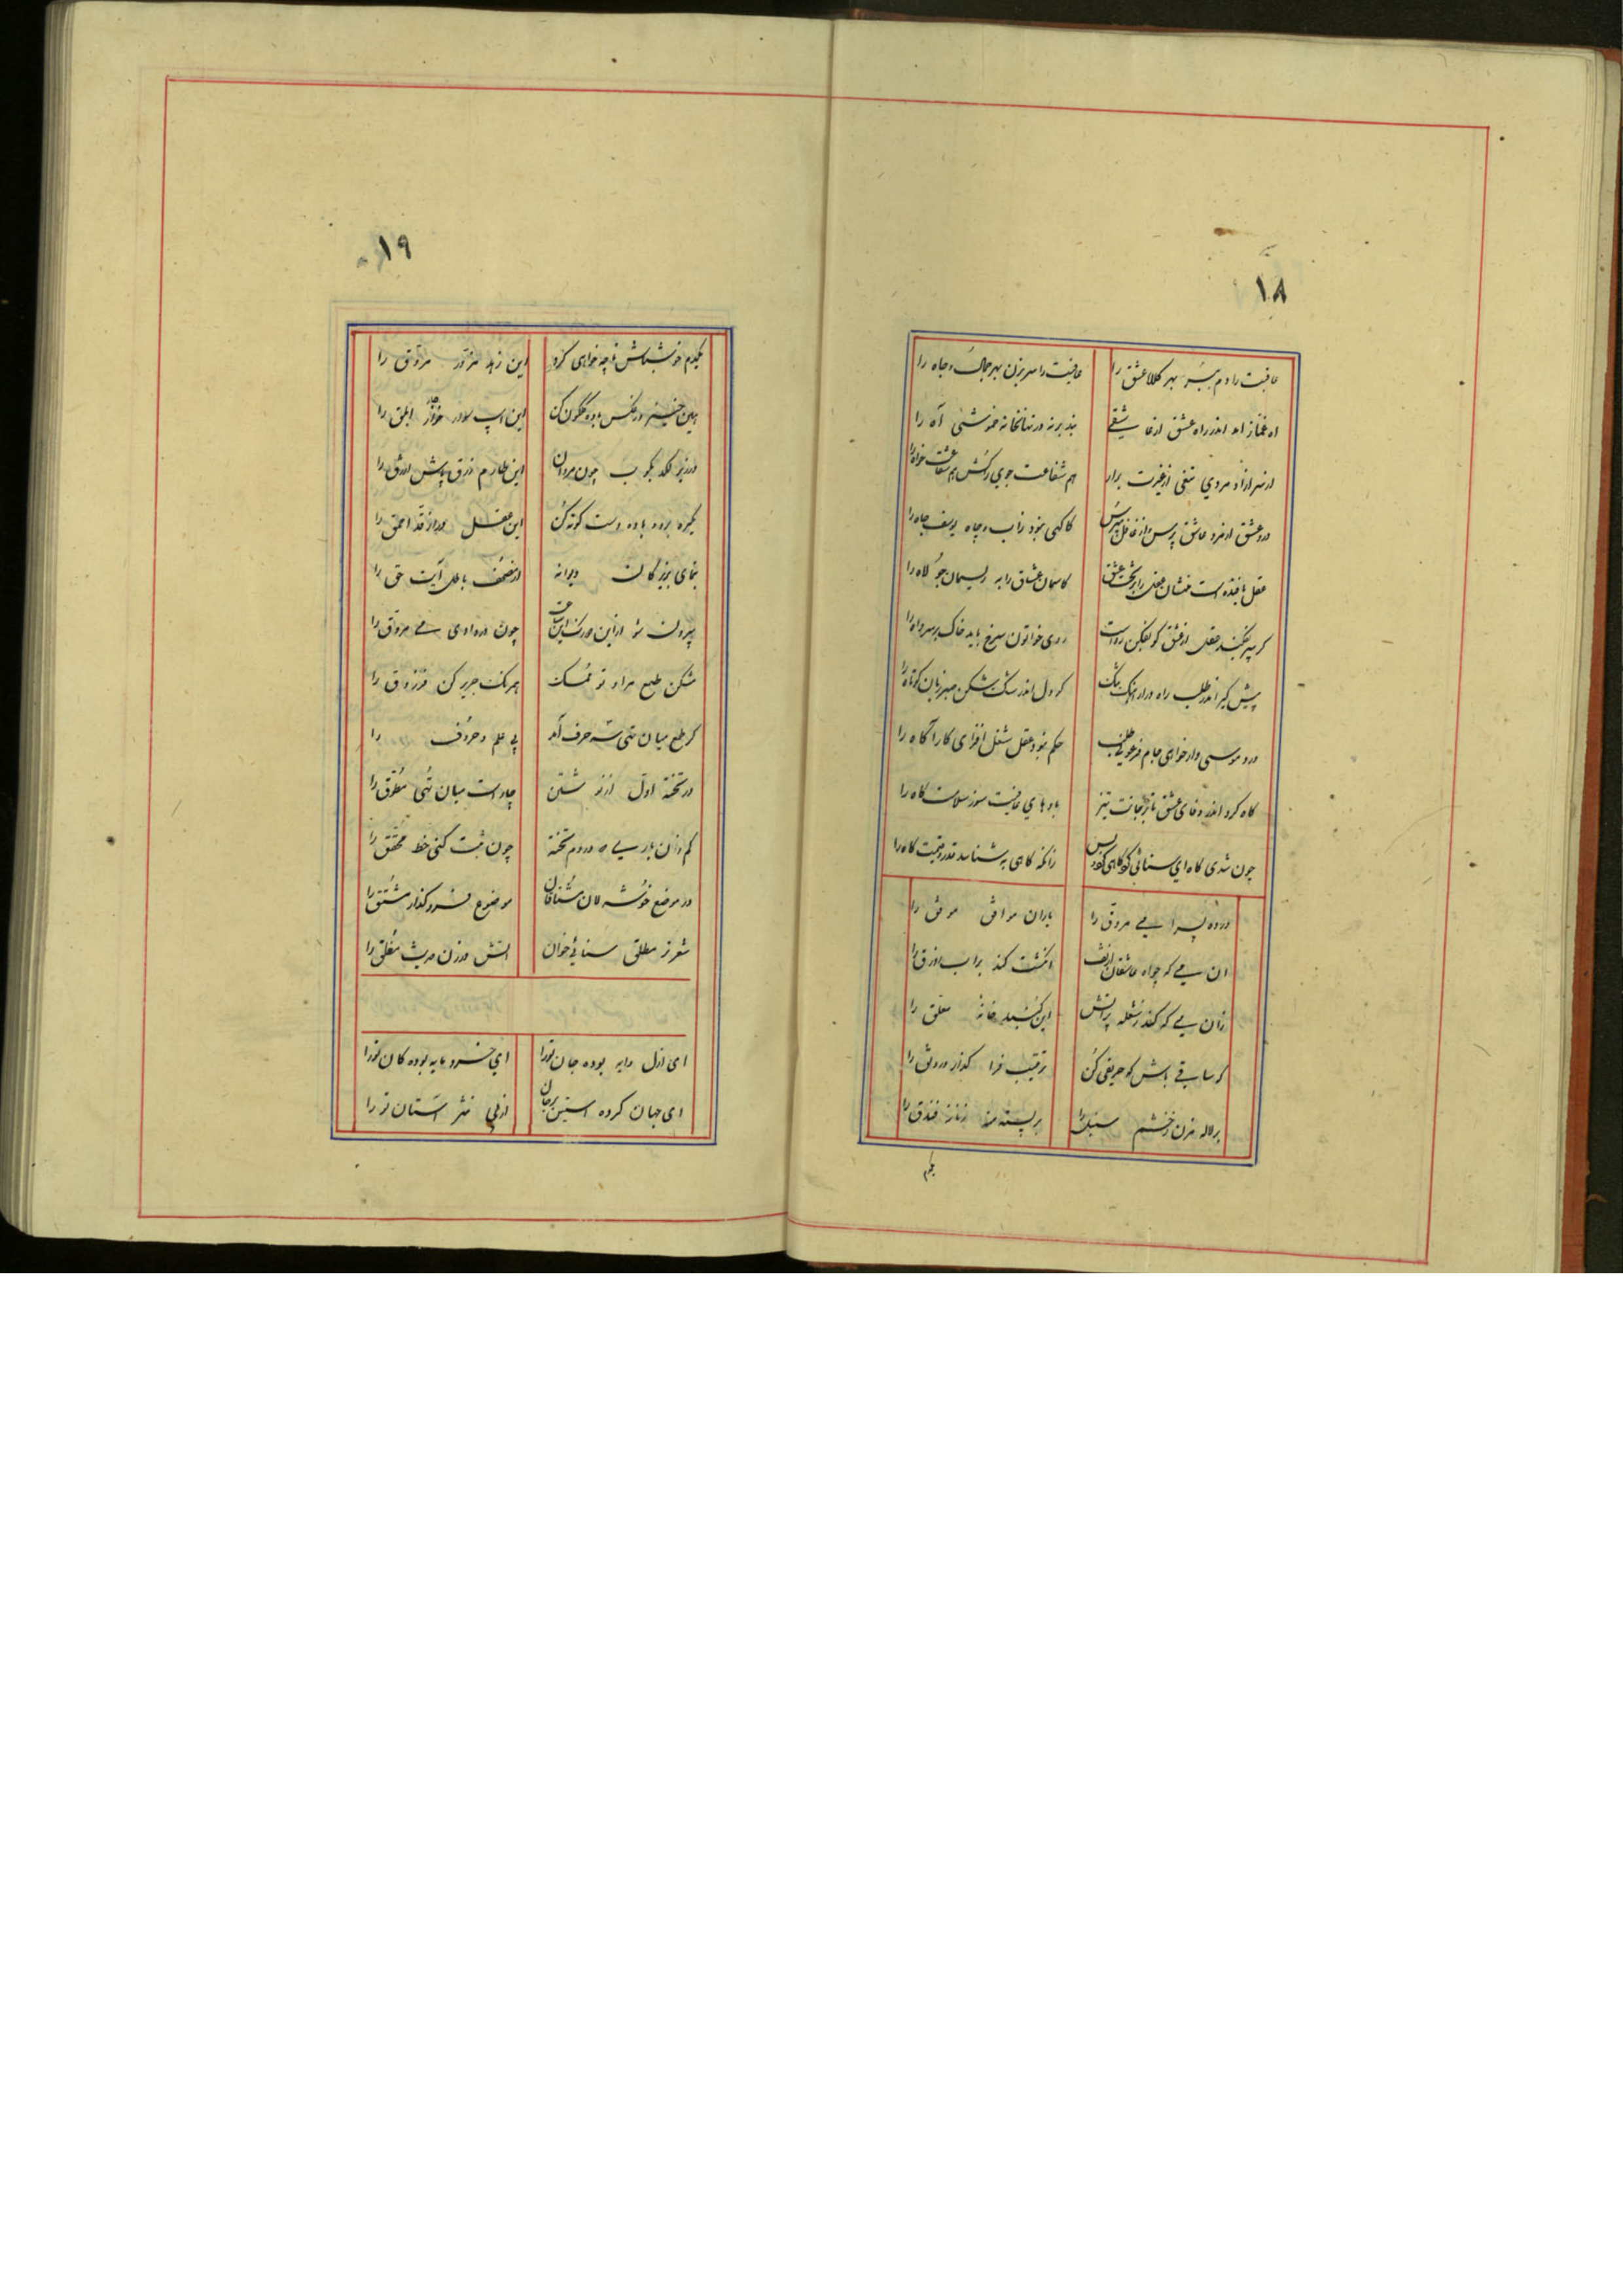 ۱۸
عافیت را دم ببر بهر کلاه عشق را عافیت را سر بزن بهر جمال و جاه را
اه غماز اند اندر راه عشق از عاشقی بند بر نه در نهانخانه خموشی آه را
ور سر آزاد مردی تنفی از غیرت برار هم شفاعت جوی
درد عشق از مرد عاشق پرس و از عاقل مپرس کاگهی نبود ز آب و چاه یوسف چاه را
عقل بافنده است منشان عقل را بر تخت عشق کاسمان عشاق را به ریسمان جولاه را
گر سپر بفکند عقل از عشق گو بفکن رواست روی خواتون سرخ باید خاک بر سر داه را
پیش گیر اندر طلب راه دراز آهنگ کو دل اندر شکن صبر زبان کوتاه را
درد موسی وار خواهی جام فرعونی طلب حکم نبود عقل شغل افزای کار آگاه را
کاه کرد اندر وفای عشق با تو جانت نیز باد های عافیت سوز سلامت کاه را
چون شدی کاه ای سنائی زانکه کاهی به شناسد قدر و قیمت کاه را
در ده پسرا می مروق را یاران موافق موفق را
ان می که چو اه عاشقان از تف انگشت کند بر اب زورق را
زان می که کند ز شعله پر اتش این گنبد خانهٔ معلق را
گو ساقی باش گو حریفی کن ترتیب فرا گذار رونق را
بر لاله مزن ز خشم سنبل را بر پسته منه ز ناز فندق را
یکدم
۱۹
یکدم خوش باش تا چه خواهی کرد این زهد مزور مزوق را
هین خیز و ز عکس باده گلگون کن این اسپ سوار خوار ابلق را
در زیر لگد بکوب چون مردان این طارم زرق پاش ازرق را
یکره بدو باده دست کوته کن این عقل دراز قد احمق را
بنمای بزیرکان دیوانه از مصحف باطل آیت حق را
بیرون شو از این دو رنگ چون در دادی می مروق را
مشکن طمع مراد تو ممسک همرنگ جریر کن فرزدق را
گر طمع میان تهی سه حرف آمد بی علم و حروف را
در تخته اول از تو شستن چاره است میان تهی مطوق را
کم زان باری که در دوم تخته چون ثبت کنی خط محقق را
در موضع خوشه لان مشتاقان موضوع فرو گذار مشتق را
شعر تر مطلق سنایی خوان اتش در زن حدیث مغلق را
ای ازل دایه بوده جان ترا ای خرد مایه بوده کان ترا
ای جهان کرده استین پر جان از پی نثر استان ترا